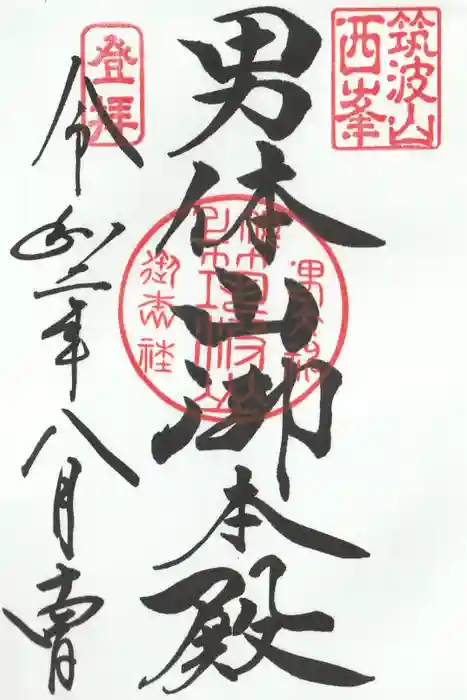 筑波山
西峯
男体山御本殿
登拝
令和二年八月吉日